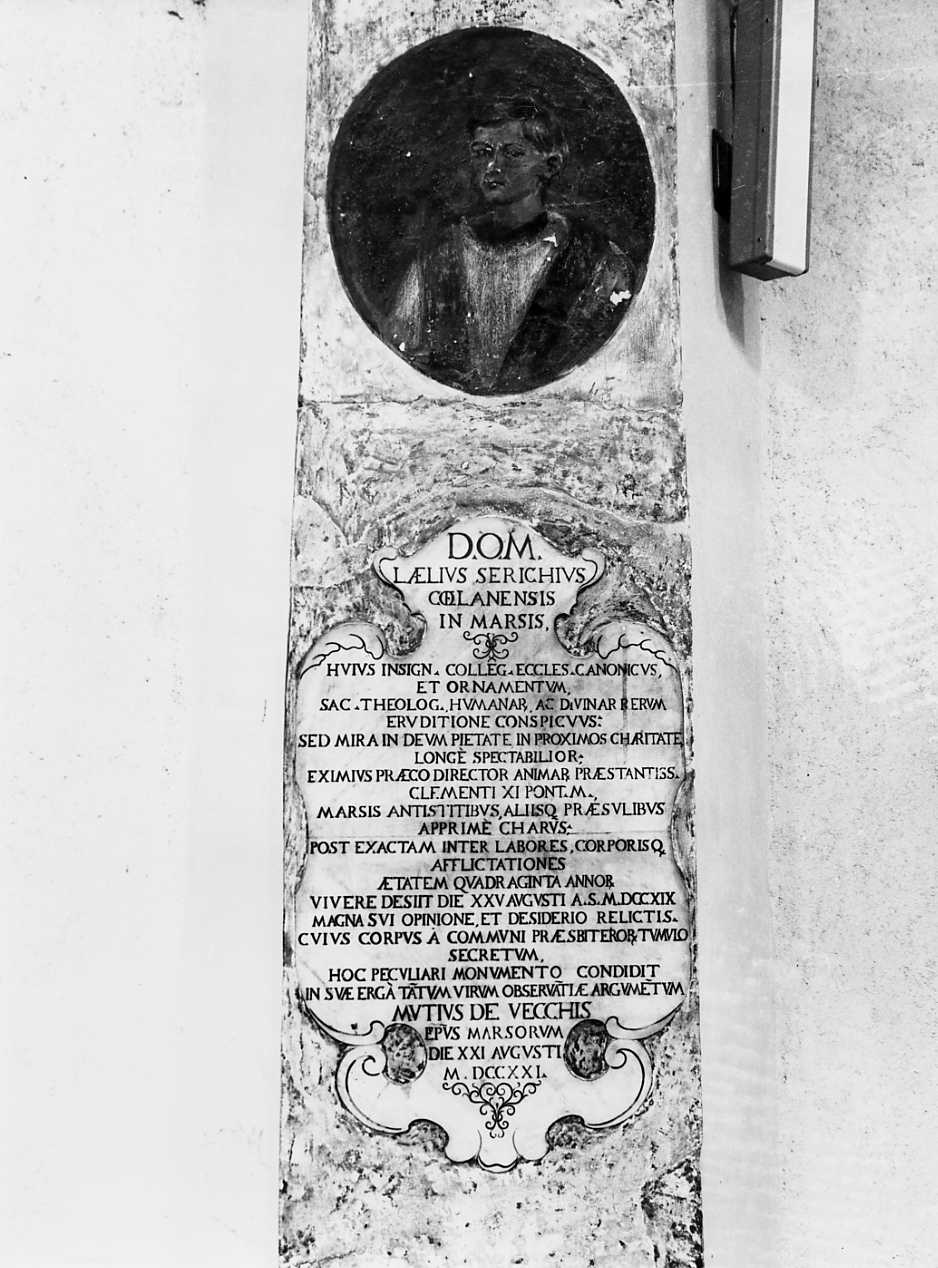 D.O.M.
LÆLIVS SERICHIVS
CŒLANENSIS
IN MARSIS,
HVIVS INSIGN. COLLEG. ECCLES. CANONICVS,
ET ORNAMENTVM,
SAC. THEOLOG., HVMANAR, AC DIVINAR RERVM
ERVDITIONE CONSPICVVS:
SED MIRA IN DEVM PIETATE IN PROXIMOS CHARITATE
LONGÈ SPECTABILIOR;
EXIMIVS PRÆCO DIRECTOR ANIMAR PRÆSTANTISS.
CLEMENTI XI PONT. M.,
MARSIS ANTISTITIBVS, ALIISQ PRÆSVLIBVS
APPRIMÈ CHARVS;
POST EXACTAM INTER LABORES, CORPORISQ
AFFLICTATIONES
ÆTATEM QVADRAGINTA ANNOR
VIVERE DESIIT DIE XXV AVGVSTI A.S.M.DCCXIX
MAGNA SVI OPINIONE, ET DESIDERIO RELICTIS.
CVIVS CORPVS À COMMVNI PRÆSBITEROR TVMVLO
SECRETVM,
HOC PECVLIARI MONVMENTO CONDIDIT
IN SVÆ ERGÀ TĀTVM VIRVM OBSERVĀTIÆ ARGVMĒTVM
MVTIVS DE VECCHIS
EPVS MARSORVM
DIE XXI AVGVSTI
M.DCCXXI.